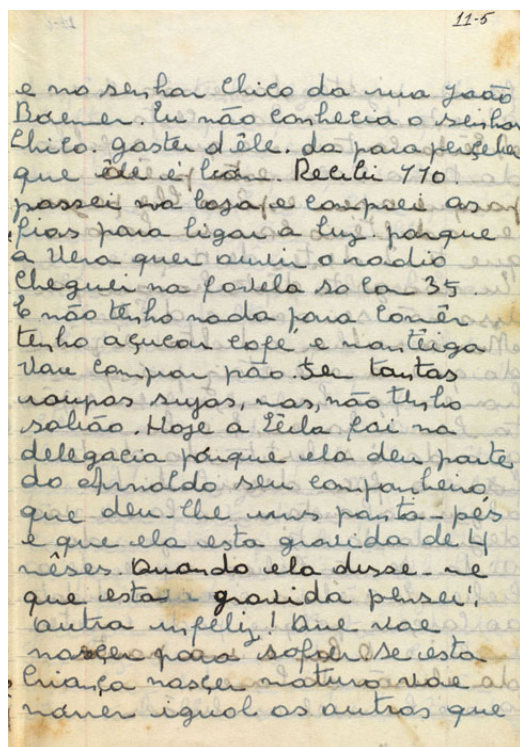 11-5
e no senhor Chico da rua João
Boemer. Eu não conhecia o senhor
Chico. gostei d'êle. da para perçeber
que êle é bom. Recebi 110.
passei na loja e comprei as
fios para ligar a luz porque
a Vera quer ouvir o radio
Cheguei na favela so com 35.
E não tenho nada para comêr
tenho açucar café, e manteiga
vou comprar pão. tem tantas
roupas sujas, mas, não tenho
sabão. Hoje a Leila foi na
delegacia porque ela deu parte
do Arnaldo seu companheiro
que deu lhe uns ponta-pés
e que ela esta gravida de 4
mêses. Quando ela disse-me
que esta gravida pensei:
outra infeliz! Que vae
nasçer para sofrer se esta
Criança nasçer maturo vae
morrer igual as outras que